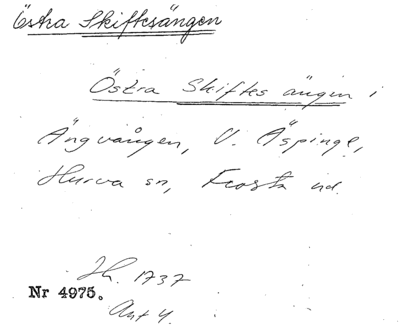 Östra Skiftesängen
Östra Skiftes ängen i
Ängvången, V. Äspinge,
Hurva sn, Frosta hd.
Jh. 1737
Nr 4975.
Akt 4.